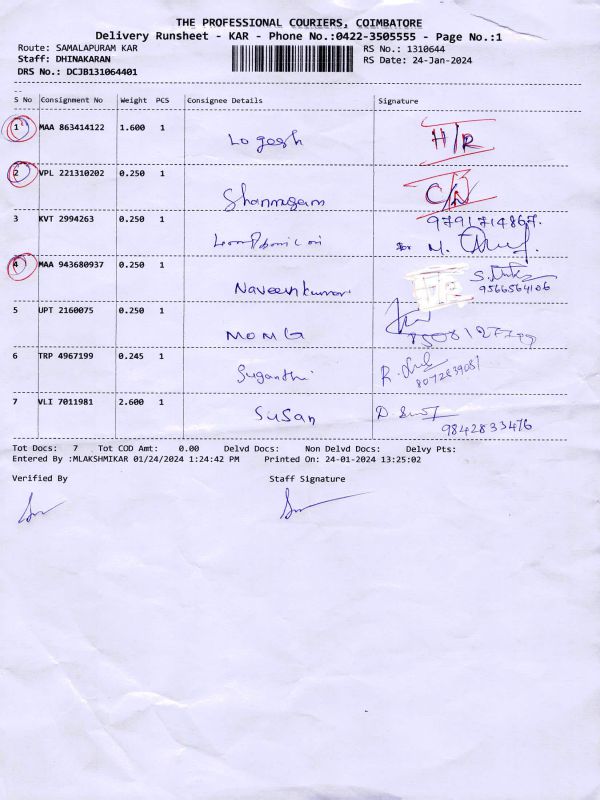 THE PROFESSIONAL COURIERS, COIMBATORE
Delivery Runsheet - KAR - Phone No.:0422-3505555 - Page No.:1
Route: SAMALAPURAM KAR RS No.: 1310644
Staff: DHINAKARAN RS Date: 24-Jan-2024
DRS No.: DCJB131064401
S No Consignment No Weight PCS Consignee Details Signature
1 MAA 863414122 1.600 1 Logesh H/R
2 VPL 221310202 0.250 1 Shanmugam C/N
9791714867.
3 KVT 2994263 0.250 1 for M.
4 MAA 943680937 0.250 1 Naveenkumar
9566564106
5 UPT 2160075 0.250 1 MOMG
6 TRP 4967199 0.245 1 Suganthi R.
8072839081
7 VLI 7011981 2.600 1 SUSAN D.
9842833476
Tot Docs: 7 Tot COD Amt: 0.00 Delvd Docs: Non Delvd Docs: Delvy Pts:
Entered By :MLAKSHMIKAR 01/24/2024 1:24:42 PM Printed On: 24-01-2024 13:25:02
Verified By Staff Signature